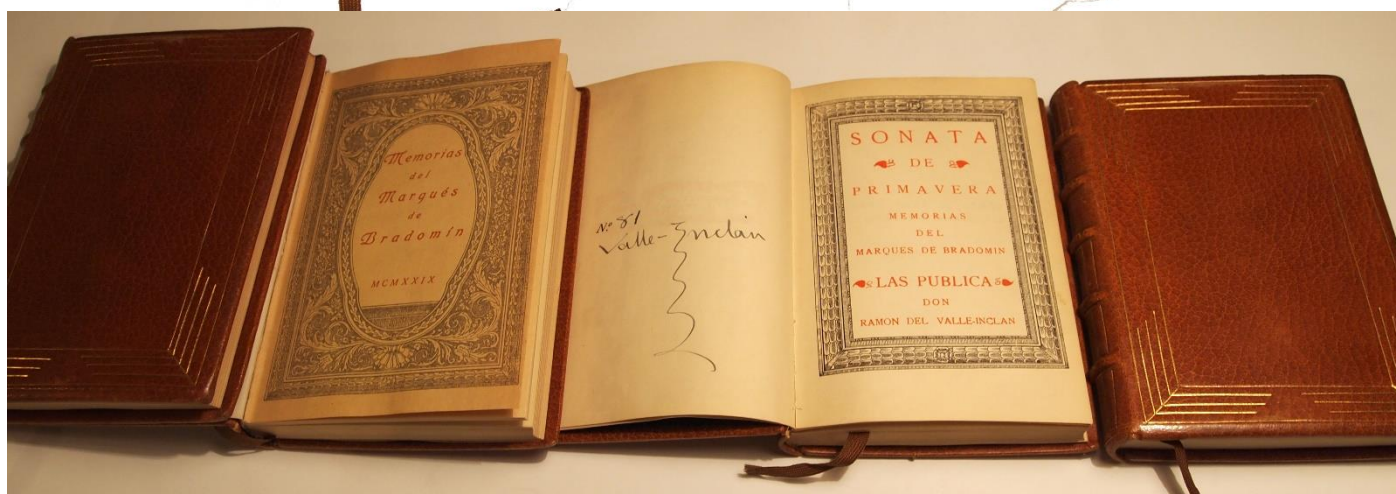 Memorias
del
Marqués
de
Bradomín
MCMXXIX
Nº 81
Valle-Inclán
SONATA
DE
PRIMAVERA
MEMORIAS
DEL
MARQUES DE BRADOMIN
LAS PUBLICA
DON
RAMON DEL VALLE-INCLAN